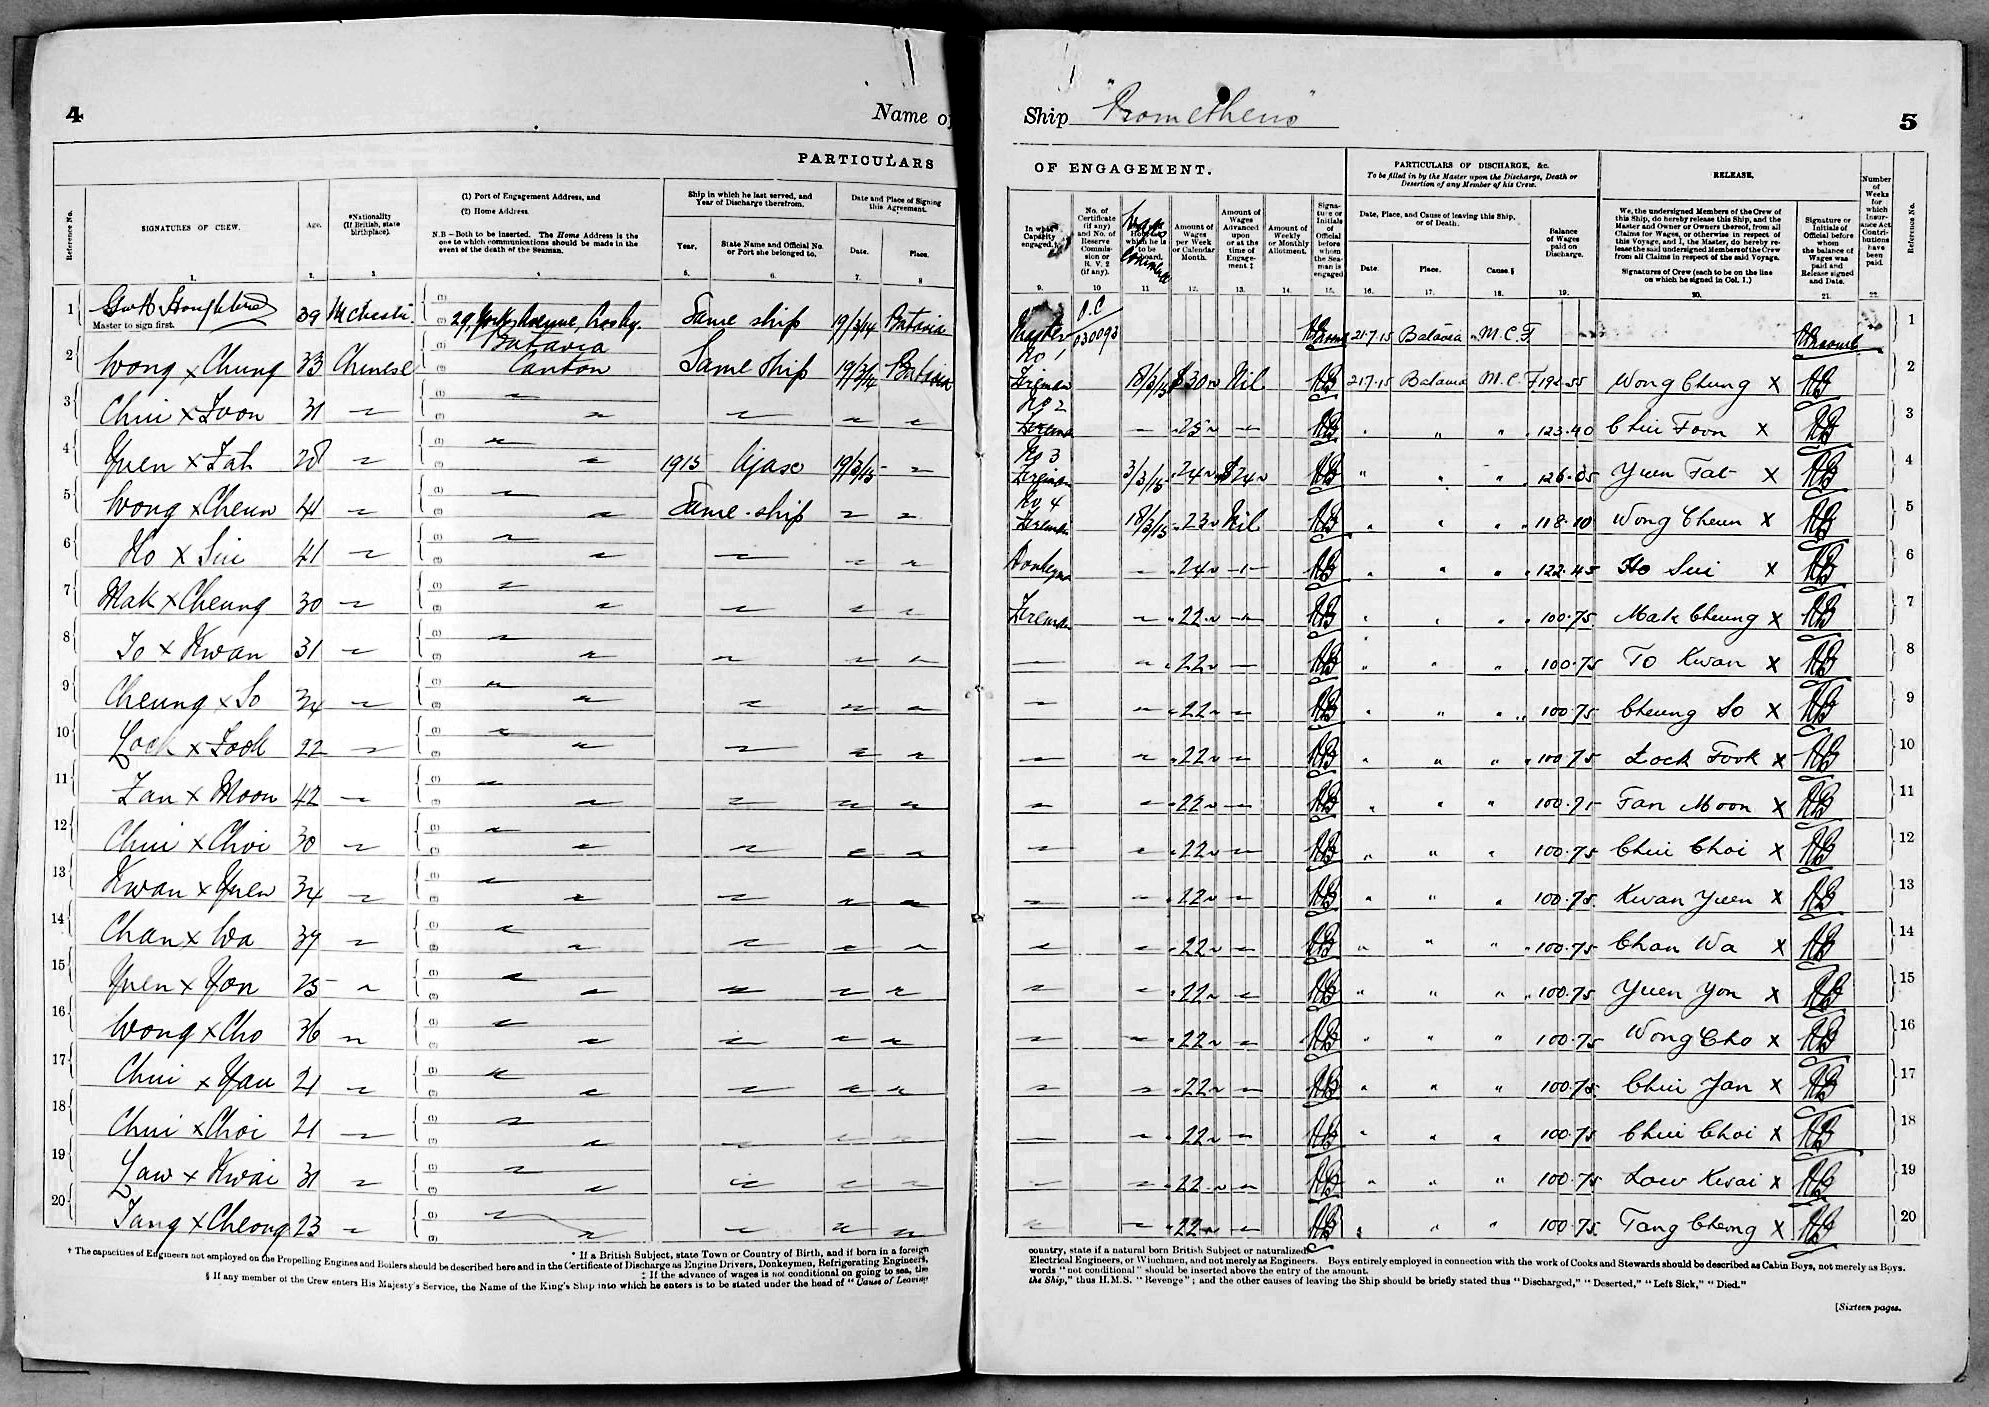 4
Name of
PARTICULARS
Reference No.
SIGNATURES OF CREW.
Age.
*Nationality (If British, state birthplace).
(1) Port of Engagement Address, and
(2) Home Address.
N.B.—Both to be inserted. The Home Address is the one to which communications should be made in the event of the death of the Seaman.
Ship in which he last served, and Year of Discharge therefrom.
Year.
State Name and Official No. or Port she belonged to.
Date and Place of Signing this Agreement.
Date.
Place.
1. 2. 3. 4 5. 6. 7. 8
1 39 Same ship 19/3/14 Batavia
Master to sign first.
Batavia
2 Wong x Chung 33 Chinese Canton Same ship 19/3/14 Batavia
3 Chui x Foon 31 " " " " " "
4 Yuen x Fat 28 " " " 1915 Ajax 19/3/15 "
5 Wong x Cheun 41 " " " Same ship " "
6 Ho x Sui 41 " " " " " "
7 Mak x Cheung 30 " " " " " "
8 To x Kwan 31 " " " " " "
9 Cheung x So 34 " " " " " "
10 Lock x Fook 22 " " " " " "
11 Fan x Moon 42 " " " " " "
12 Chui x Choi 30 " " " " " "
13 Kwan x Yuen 34 " " " " " "
14 Chan x Wa 37 " " " " " "
15 Yuen x Yon 25 " " " " " "
16 Wong x Cho 36 " " " " " "
17 Chui x Yan 21 " " " " " "
18 Chui x Choi 21 " " " " " "
19 Law x Kwai 31 " " " " " "
20 Tang x Cheong 23 " " " " " "
† The capacities of Engineers not employed on the Propelling Engines and Boilers should be described here and in the Certificate of Discharge as Engine Drivers, Donkeymen, Refrigerating Engineers,
* If a British Subject, state Town or Country of Birth, and if born in a foreign
‡ If the advance of wages is not conditional on going to sea, the
§ If any member of the Crew enters His Majesty's Service, the Name of the King's Ship into which he enters is to be stated under the head of "Cause of Leaving
Ship "Prometheus"
5
OF ENGAGEMENT.
PARTICULARS OF DISCHARGE, &c.
To be filled in by the Master upon the Discharge, Death or Desertion of any Member of his Crew.
RELEASE.
Number of Weeks for which Insurance Act Contributions have been paid.
Reference No.
In what Capacity engaged.
No. of Certificate (if any) and No. of Reserve Commission or R.V.2 (if any).
Wages Commence
Amount of Wages per Week or Calendar Month.
Amount of Wages Advanced upon or at the time of Engagement ‡
Amount of Weekly or Monthly Allotment.
Signature or Initials of Official before whom the Seaman is engaged
Date, Place, and Cause of leaving this Ship, or of Death.
Date.
Place.
Cause. §
Balance of Wages paid on Discharge.
We, the undersigned Members of the Crew of this Ship, do hereby release this Ship, and the Master and Owner or Owners thereof, from all Claims for Wages, or otherwise in respect of this Voyage, and I, the Master, do hereby release the said undersigned Members of the Crew from all Claims in respect of the said Voyage.
Signatures of Crew (each to be on the line on which he signed in Col. 1.)
Signature or Initials of Official before whom the balance of Wages was paid and Release signed and Date.
9. 10 11 12. 13. 14. 15. 16. 17. 18. 19. 20. 21. 22.
Master 030093 21.7.15 Batavia M.C.F. 1
No 1 Fireman 18/3/15 $30 Nil 21.7.15 Batavia M.C.F 194.55 Wong Chung X 2
No 2 Fireman " 25 " " " " 123.40 Chui Foon X 3
No 3 Fireman 3/3/15 24 $24 " " " 126.05 Yuen Fat X 4
No 4 Fireman 18/3/15 23 Nil " " " 118.10 Wong Cheun X 5
Donkeyman " 24 " " " " 122.45 Ho Sui X 6
Fireman " 22 " " " " 100.75 Mak Cheung X 7
" " 22 " " " " 100.75 To Kwan X 8
" " 22 " " " " 100.75 Cheung So X 9
" " 22 " " " " 100.75 Lock Fook X 10
" " 22 " " " " 100.75 Fan Moon X 11
" " 22 " " " " 100.75 Chui Choi X 12
" " 22 " " " " 100.75 Kwan Yuen X 13
" " 22 " " " " 100.75 Chan Wa X 14
" " 22 " " " " 100.75 Yuen Yon X 15
" " 22 " " " " 100.75 Wong Cho X 16
" " 22 " " " " 100.75 Chui Yan X 17
" " 22 " " " " 100.75 Chui Choi X 18
" " 22 " " " " 100.75 Low Kwai X 19
" " 22 " " " " 100.75 Tang Cheong X 20
country, state if a natural born British Subject or naturalized.
Electrical Engineers, or Winchmen, and not merely as Engineers. Boys entirely employed in connection with the work of Cooks and Stewards should be described as Cabin Boys, not merely as Boys.
words "not conditional" should be inserted above the entry of the amount.
the Ship," thus H.M.S. "Revenge"; and the other causes of leaving the Ship should be briefly stated thus "Discharged," "Deserted," "Left Sick," "Died."
[Sixteen pages.